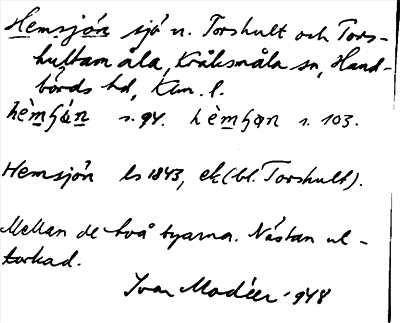 Hemsjön sjö n. Torshult och Tors-
hultamåla, Kråksmåla sn, Hand-
börds hd, Klm. l.
hèmʃö́n s. 94. hèmʃøn s. 103.
Hemsjön ls 1843, ek (bl. Torshult).
Mellan de två byarna. Nästan ut-
torkad.
Ivar Modéer 1948